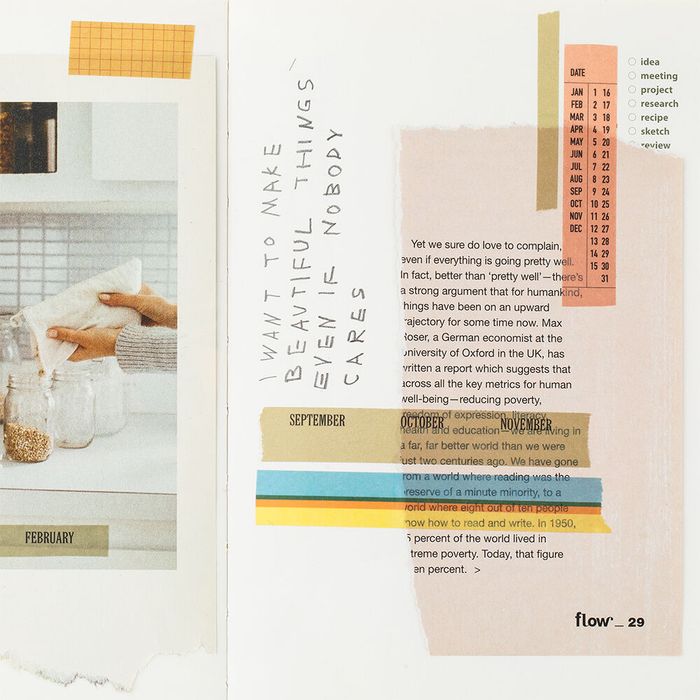 FEBRUARY
I WANT TO MAKE
BEAUTIFUL THINGS
EVEN IF NOBODY
CARES
DATE
JAN 1 16
FEB 2 17
MAR 3 18
APR 4 19
MAY 5 20
JUN 6 21
JUL 7 22
AUG 8 23
SEP 9 24
OCT 10 25
NOV 11 26
DEC 12 27
13 28
14 29
15 30
31
idea
meeting
project
research
recipe
sketch
review
Yet we sure do love to complain,
even if everything is going pretty well.
In fact, better than ‘pretty well’—there’s
a strong argument that for humankind,
hings have been on an upward
rajectory for some time now. Max
Roser, a German economist at the
University of Oxford in the UK, has
written a report which suggests that
across all the key metrics for human
well-being—reducing poverty,
freedom of expression, literacy,
health and education—we are living in
a far, far better world than we were
ust two centuries ago. We have gone
rom a world where reading was the
reserve of a minute minority, to a
world where eight out of ten people
now how to read and write. In 1950,
5 percent of the world lived in
treme poverty. Today, that figure
en percent. >
SEPTEMBER OCTOBER NOVEMBER
flow _ 29